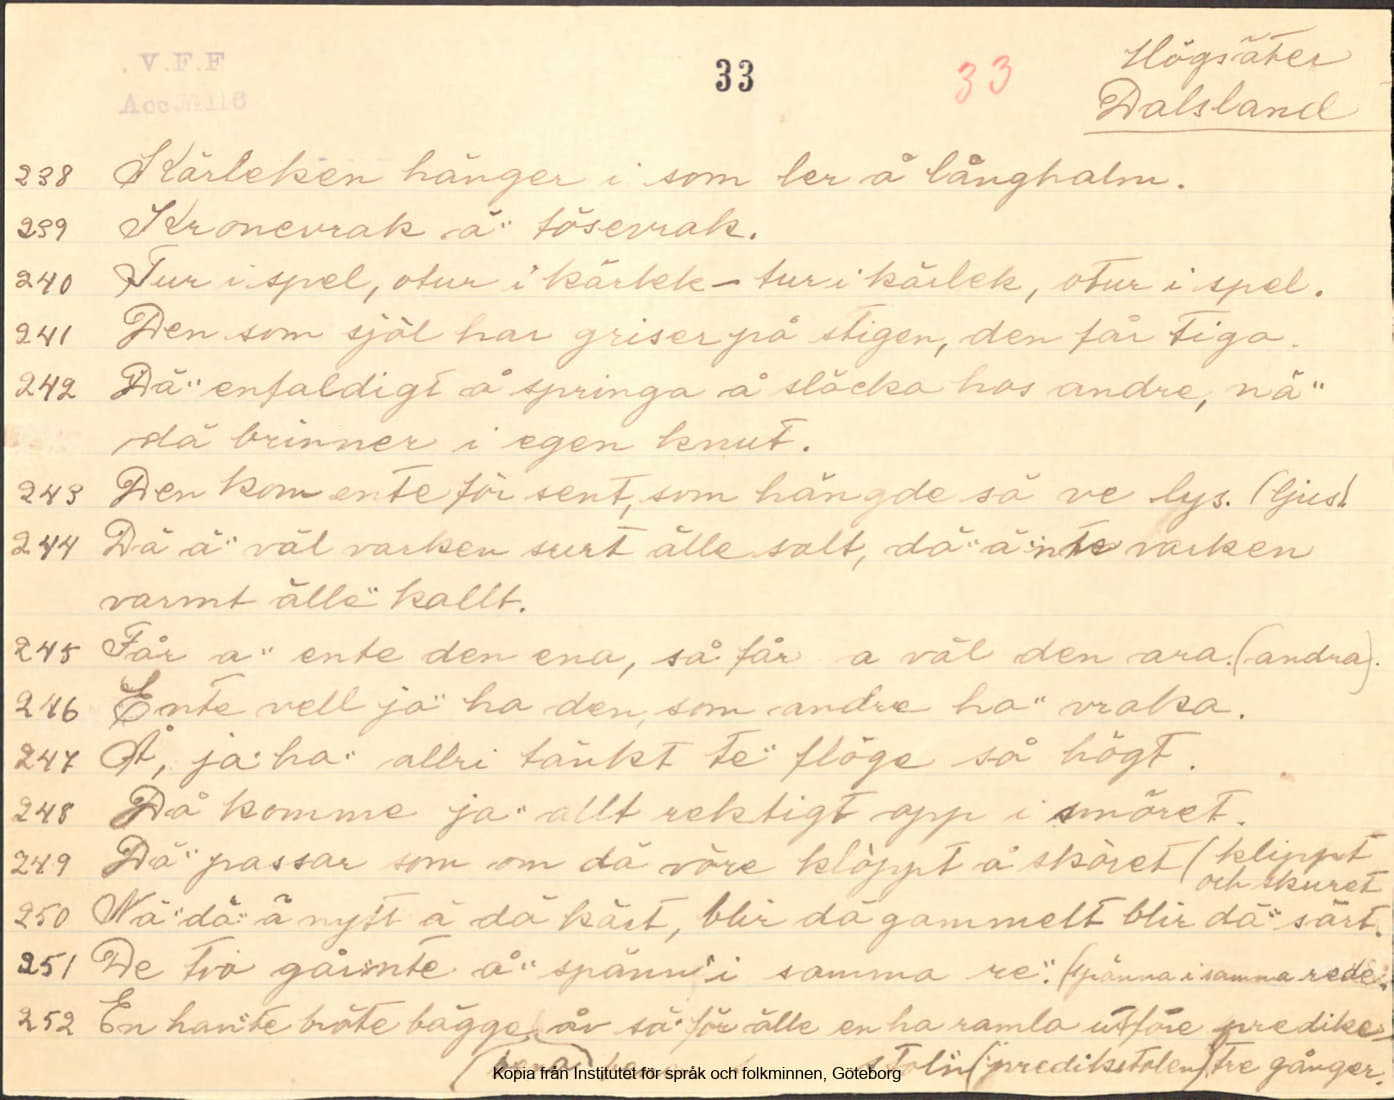 V.F.F
33
33
Högsäter
Acc. № 116
Dalsland
238 Kärleken hänger i som ler å långhalm.
239 Kronevrak ä" tösevrak.
240 Tur i spel, otur i kärlek – tur i kärlek, otur i spel.
241 Den som själ har griser på stigen, den får tiga.
242 Dä" enfaldigt å springa å släcka hos andre, nä"
dä brinner i egen knut.
243 Den kom ente för sent, som hängde sä ve lys. (ljus)
244 Dä ä" väl varken surt älle salt, dä" ä" nte varken
varmt älle" kallt.
245 Får a" ente den ena, så får a väl den ara. (andra).
246 Ente vell ja" ha den, som andre ha" vraka.
247 Å, ja" ha" allri tänkt te" flöge så högt.
248 Då komme ja" allt rektigt opp i smöret.
249 Dä" passar som om dä vöre klöppt å sköret (klippt
och skuret
250 Nä" dä" ä nytt ä dä kärt, blir dä gammelt blir dä" särt.
251 De två går inte å" spänn' i samma re". (spänna i samma rede.
252 En han'te bröte bägge av sä" för älle en ha ramla utföre predike-
stol'n (predikstolen) tre gånger.
Kopia från Institutet för språk och folkminnen, Göteborg